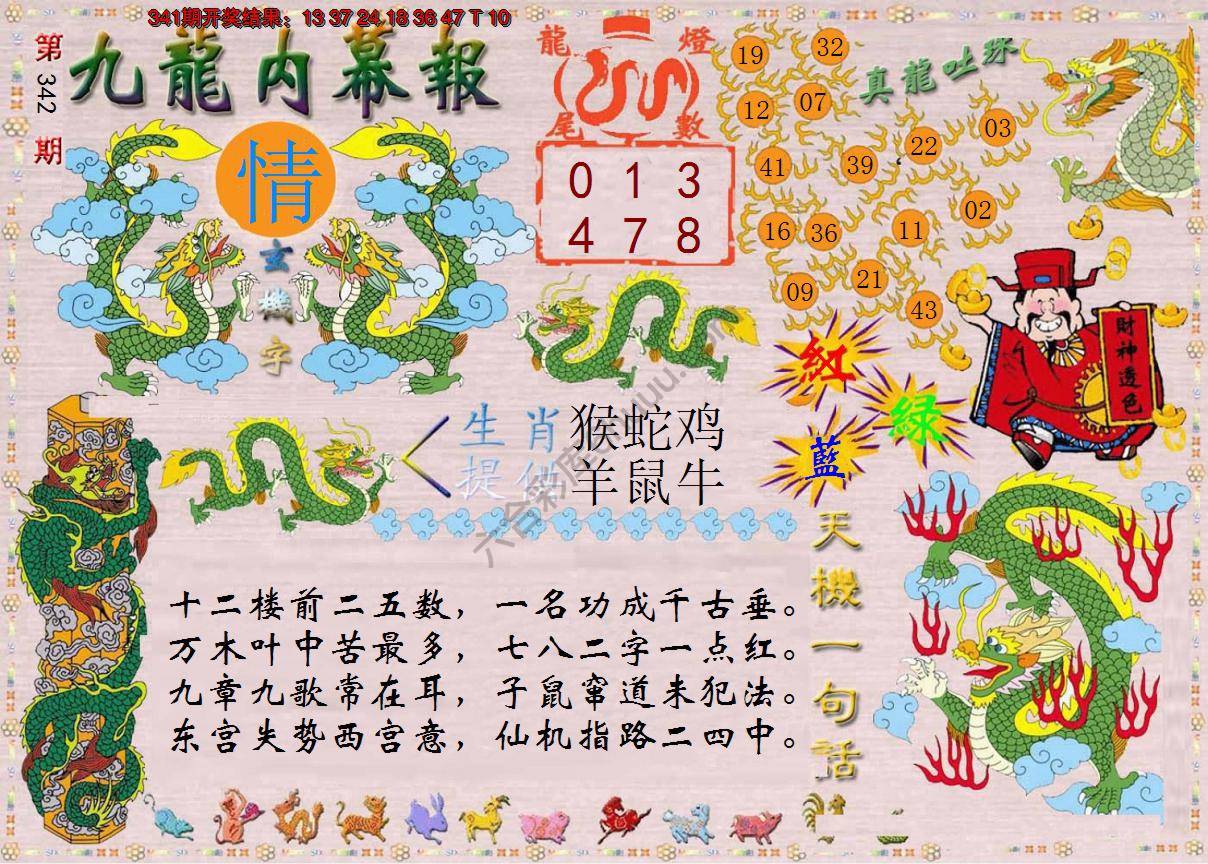 341期开奖结果：13 37 24 18 36 47 T 10
第342期
九龍内幕報
情
玄機字
龍燈
尾數
0 1 3
4 7 8
真龍吐珠
19 32
12 07
03
22
41 39
02
16 36 11
21
09
43
財神透色
紅
綠
藍
生肖 猴蛇鸡
提供 羊鼠牛
天機一句話
十二楼前二五数，一名功成千古垂。
万木叶中苦最多，七八二字一点红。
九章九歌常在耳，子鼠窜道未犯法。
东宫失势西宫意，仙机指路二四中。